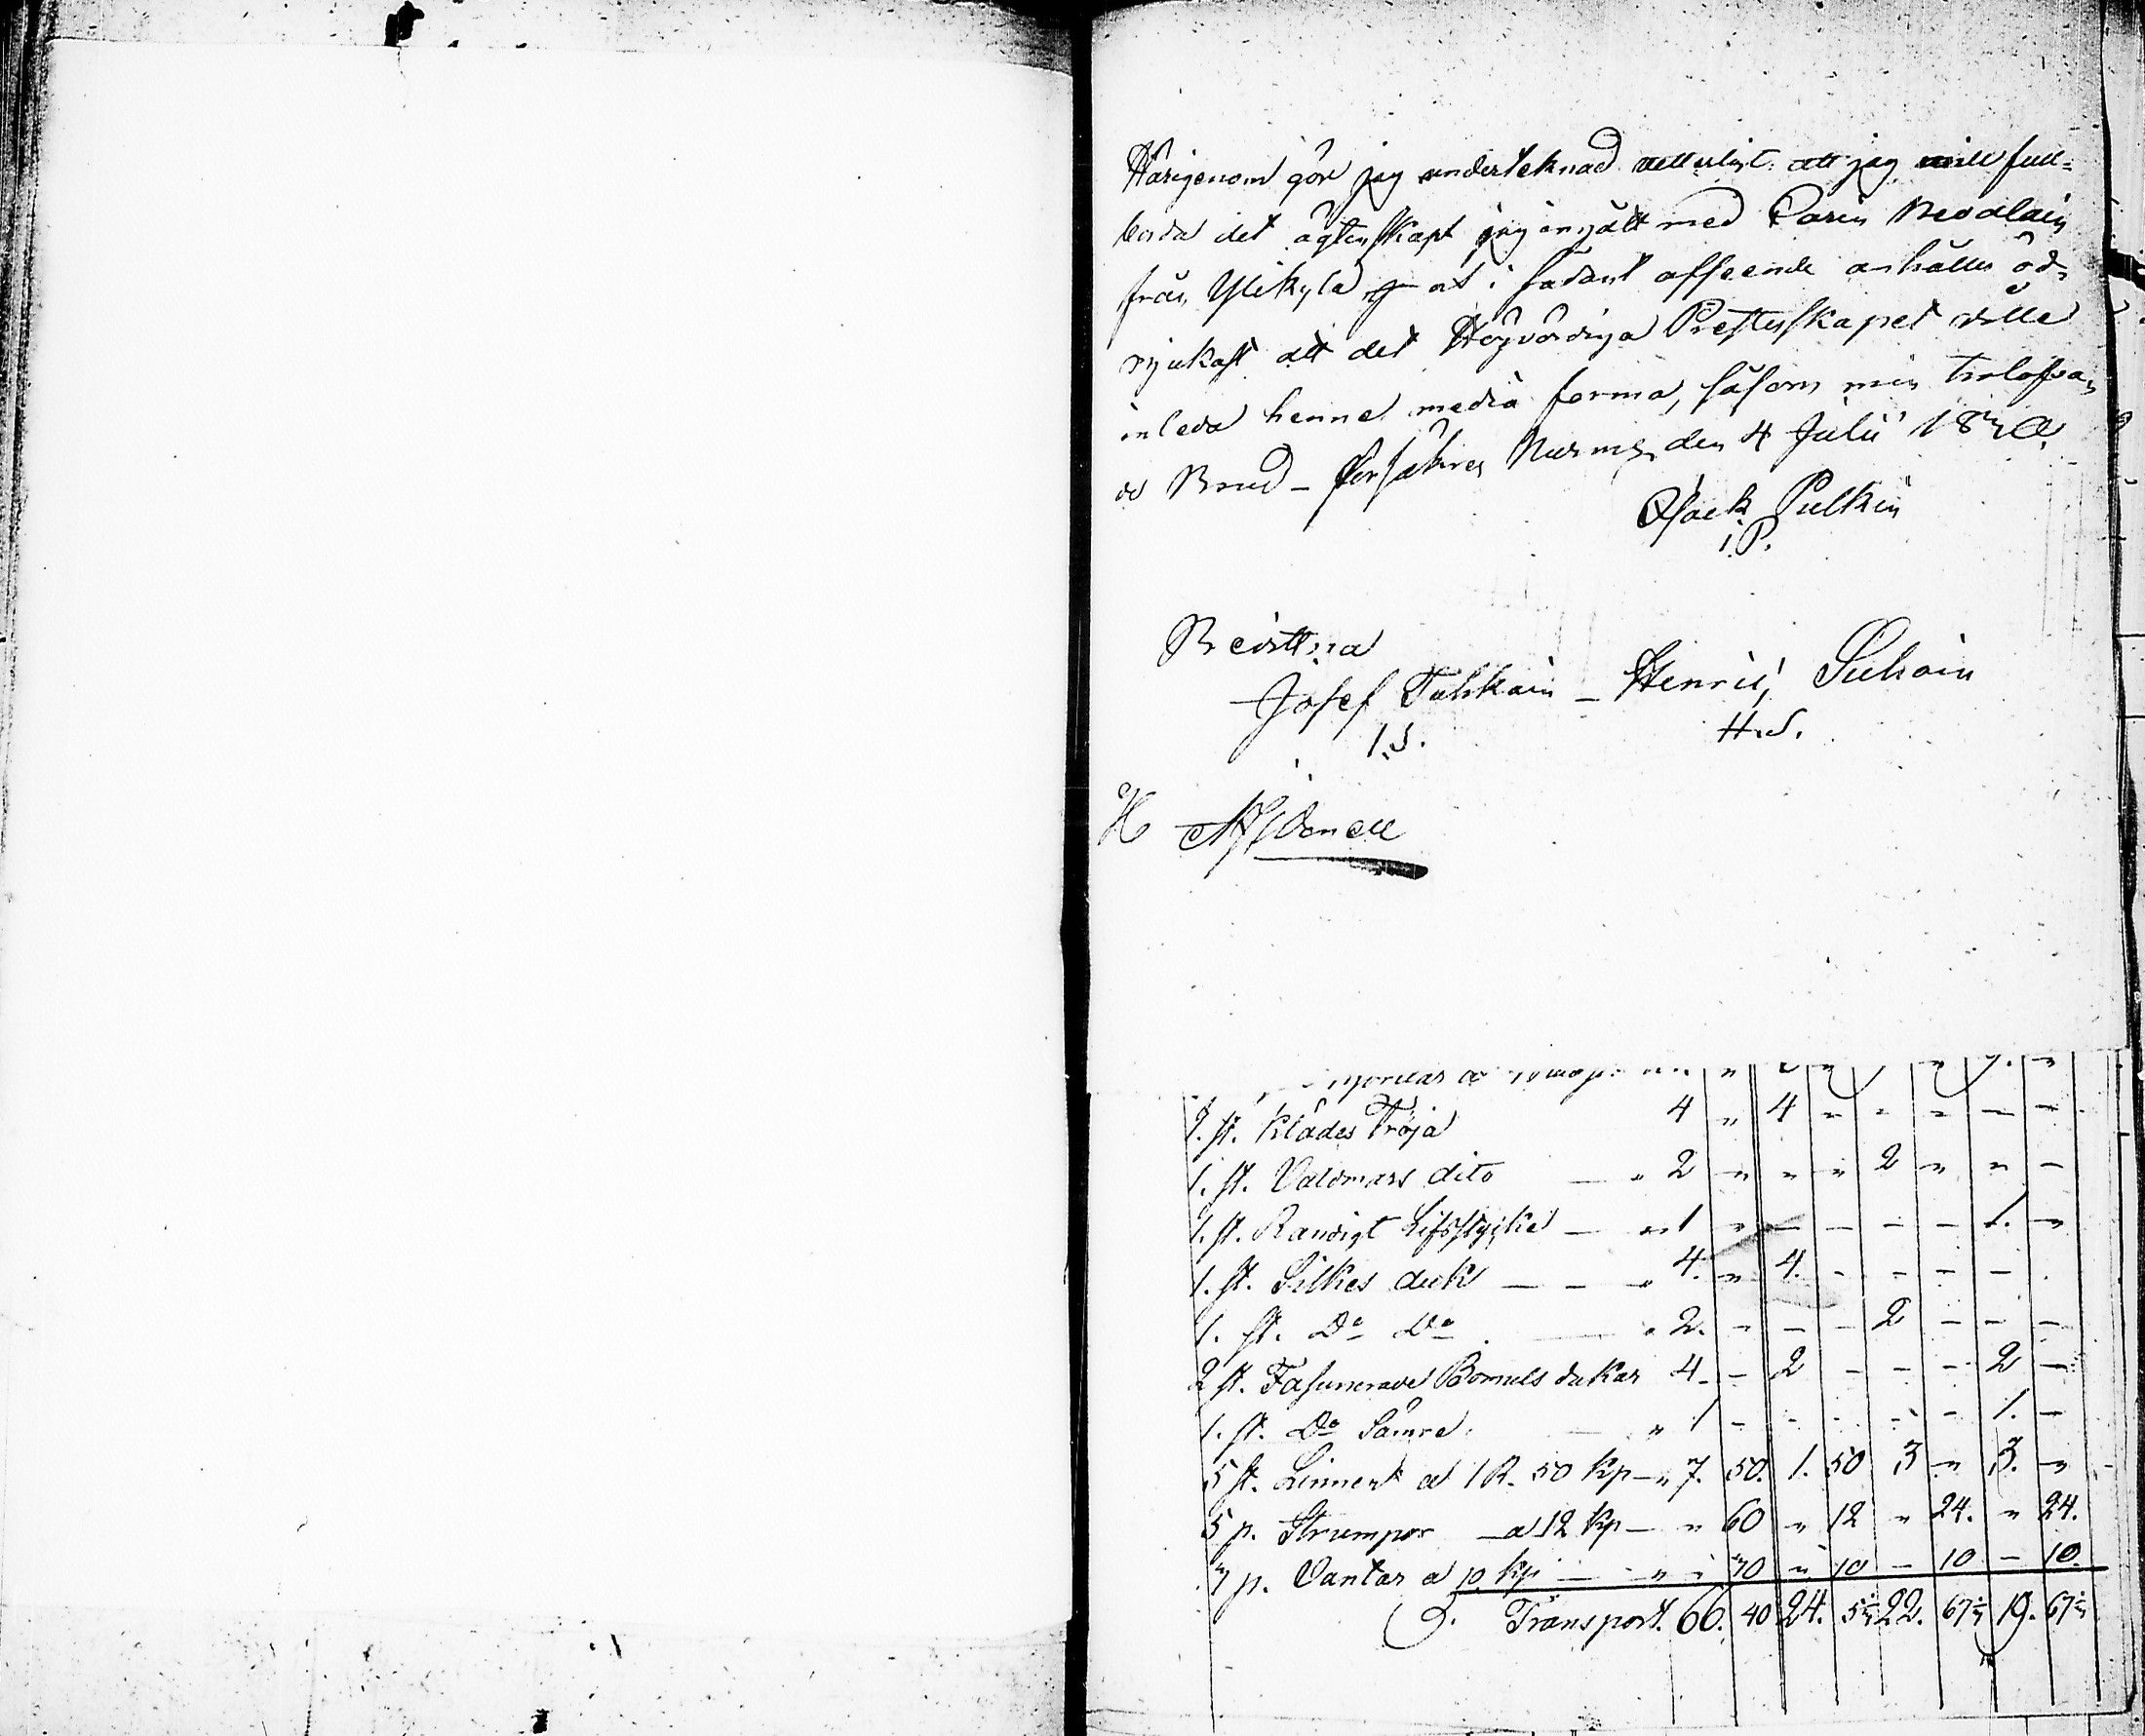 Härigenom gör jag undertecknad vetterligt att jag vill full-
borda det ägtenskapt jag ingått med Carin
från Ylikylä at i sådant afseende anhålles öd-
mjukast att det Högvördiga Presterskapet ville
inleda henne media forma, såsom min trolofva
Brud – försäkras Nurmes den 4 Julii
Isack Pulkin
I.P.
Bevittna
Josef Tuhkain – Henric Suhoin
I.S. H.S.
1. st. Klädes Tröja 4 „ 4 „ „ „ – –
1. st. Valdmars dito – „ 2 „ „ „ 2 „ „ –
1. st. Randigt Lifsstycke – „ 1 „ – – – – 1. „
1. st. Silkes duk – – „ 4. „ 4. – – – –
1. st. Do Do – „ 2. – – – 2 – – –
2 st. Fasunerade Bomuls dukar 4 – 2 – – – 2 –
1. st. Do Sämre – „ 1 – – – – – 1. –
5 st. Linnen a 1 R. 50 Kp – „ 7. 50. 1. 50 3 „ 3. „
5 p. Strumpor – a 12 Kp – „ 60 „ 12 „ 24. „ 24.
7 p. Vantar a 10 Kp – „ 70 „ 10 – 10 – 10.
Transport. 66. 40 24. 22. 19.